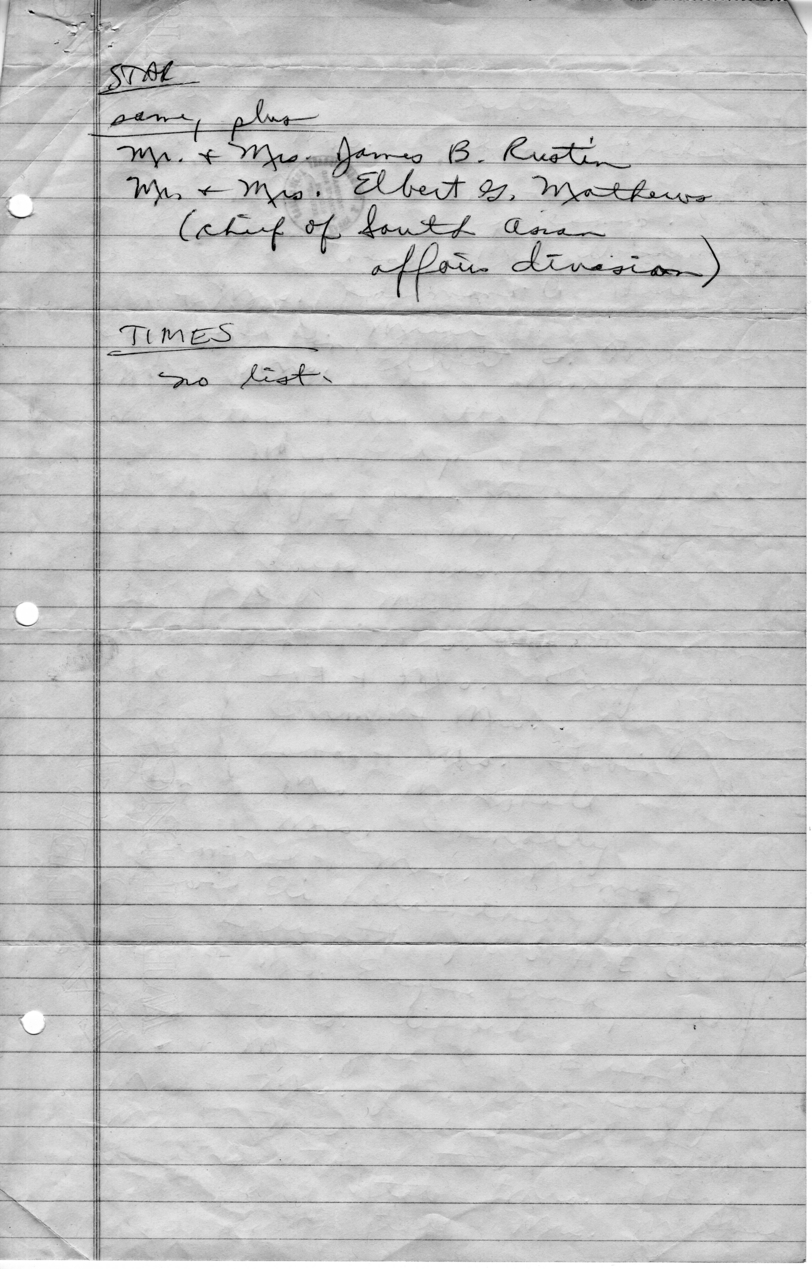 STAR
same, plus
Mr. + Mrs. James B. Rustin
Mr. + Mrs. Elbert G. Mathews
(chief of South Asian
affairs division)
TIMES
no list.